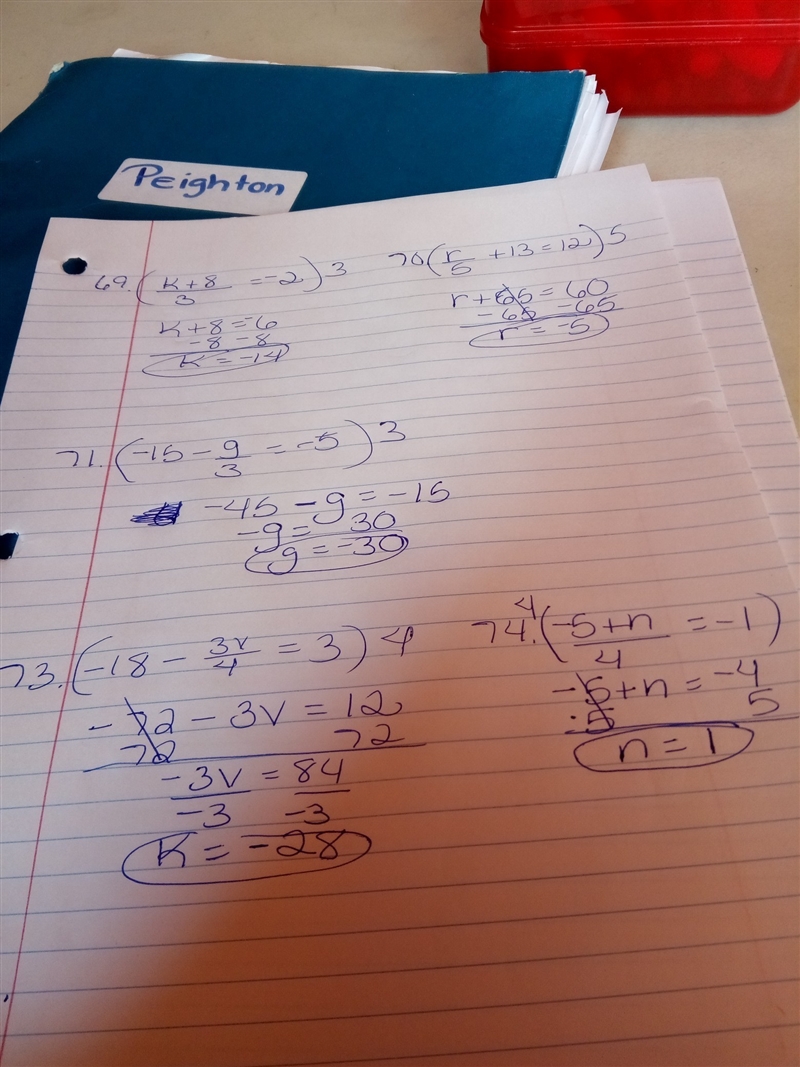 Peighton
69. (k+8/3 = -2) 3
k+8 = -6
-8 -8
k = -14
70 (r/5 + 13 = 12) 5
r + 65 = 60
- 65 -65
r = -5
71. (-15 - g/3 = -5) 3
-45 - g = -15
-g = 30
g = -30
73. (-18 - 3v/4 = 3) 4
-72 - 3v = 12
72 72
-3v = 84
-3 -3
K = -28
74. 4 (-5+n/4 = -1)
-5+n = -4
5 5
n = 1